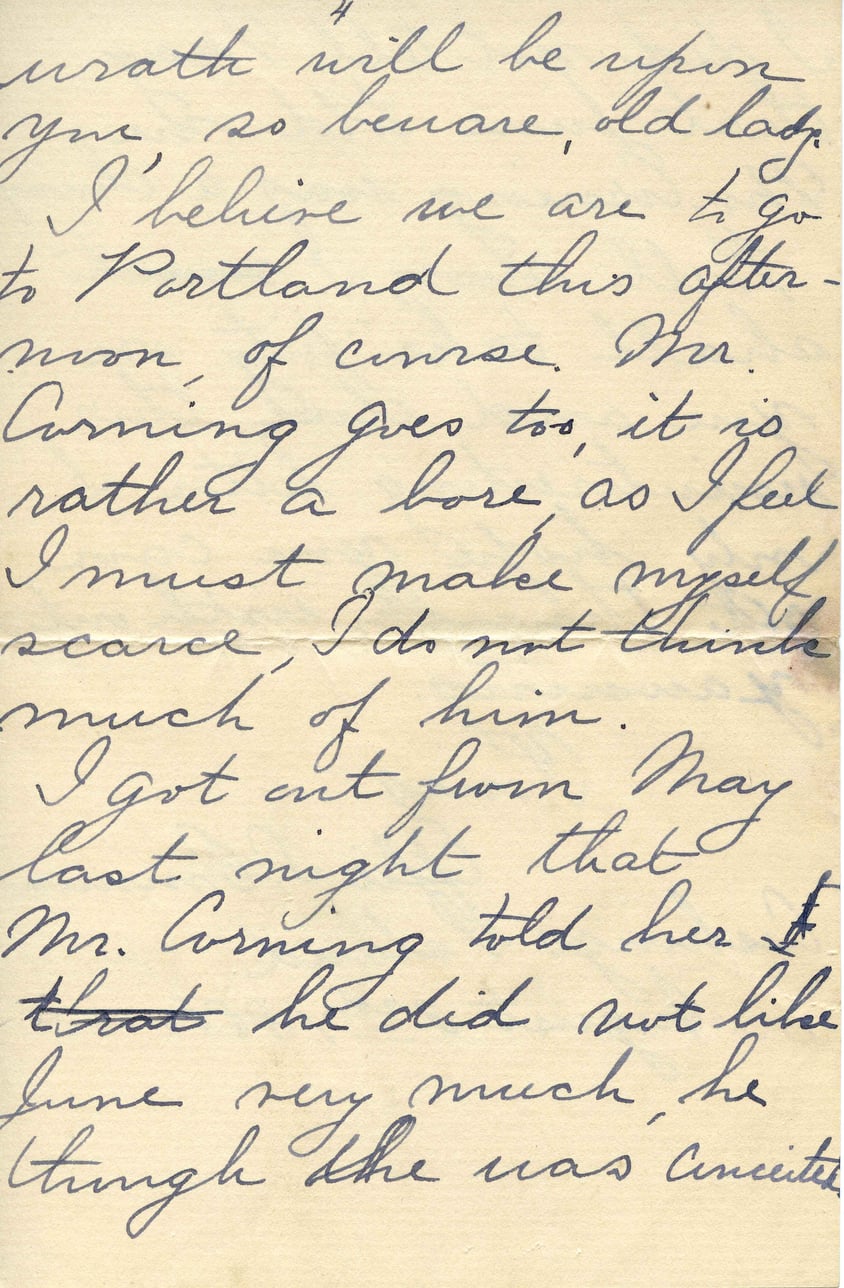 4
wrath will be upon
you, so beware, old lady.
I believe we are to go
to Portland this after-
noon, of course. Mr.
Corning goes too, it is
rather a bore, as I feel
I must make myself
scarce, I do not think
much of him.
I got out from May
last night that
Mr. Corning told her
that he did not like
June very much, he
though she was conceited